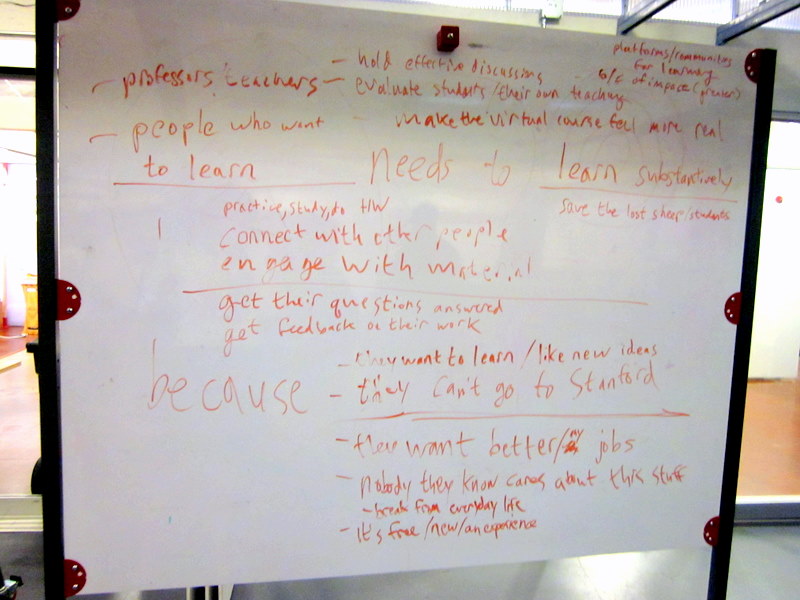 platforms/communities
for learning
- b/c of impact (greater)
- hold effective discussions
- professors, teachers
- evaluate students/their own teaching
- make the virtual course feel more real
- people who want
to learn
needs to
learn substantively
save the lost sheep/students
practice, study, do HW
connect with other people
engage with material
get their questions answered
get feedback on their work
because
- they want to learn / like new ideas
- they can't go to Stanford
- they want better/any jobs
- nobody they know cares about this stuff
- break from everyday life
- it's free/new/an experience